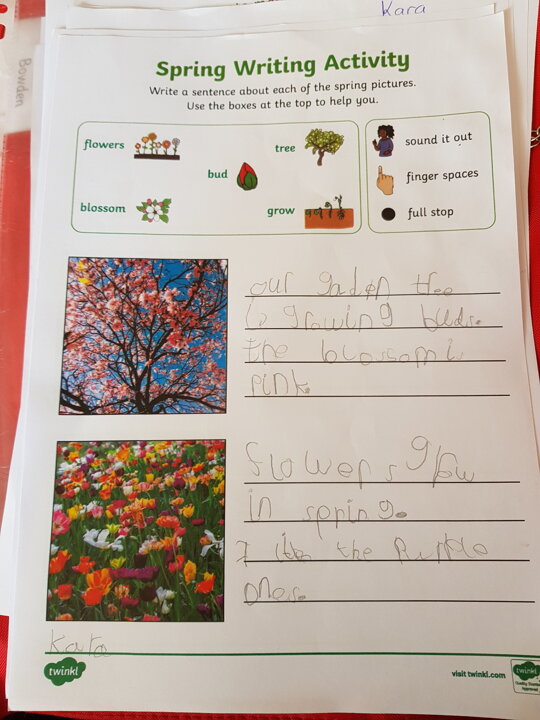 Kara
Bowden
Spring Writing Activity
Write a sentence about each of the spring pictures.
Use the boxes at the top to help you.
flowers
tree
bud
blossom
grow
sound it out
finger spaces
full stop
our gardon tree
is growing buds.
the blossom is
pink.
flowers grow
in spring.
I like the purple
ones.
Kara
twinkl
visit twinkl.com
twinkl